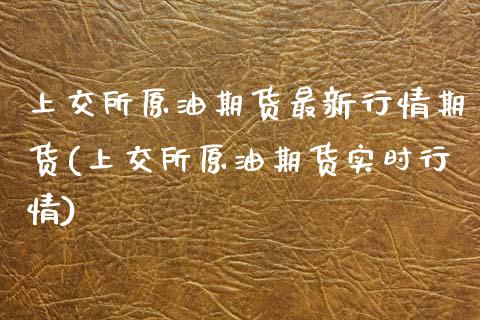 上交所原油期货最新行情期
货(上交所原油期货实时行
情)